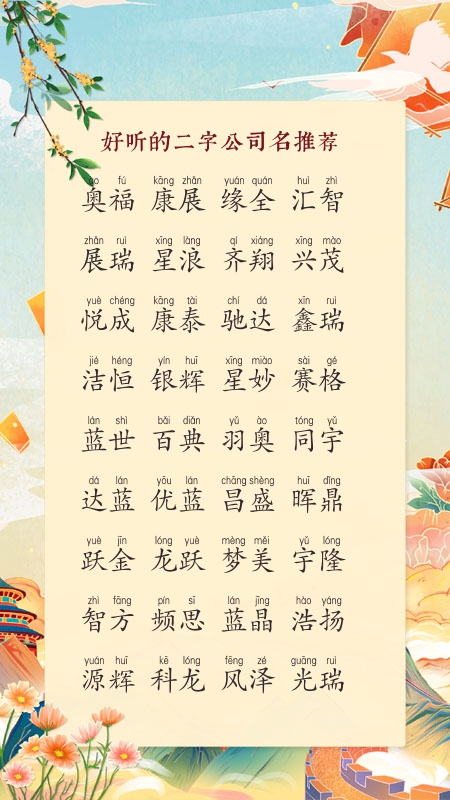 好听的二字公司名推荐
fú kāng zhǎn yuán quán huì zhì
奥福 康展 缘全 汇智
zhǎn ruì xīng làng qí xiáng xīng mào
展瑞 星浪 齐翔 兴茂
yuè chéng kāng tài chí dá xīn ruì
悦成 康泰 驰达 鑫瑞
jié héng yín huī xīng miào sài gé
洁恒 银辉 星妙 赛格
lán shì bǎi diǎn yǔ ào tóng yǔ
蓝世 百典 羽奥 同宇
dá lán yōu lán chāng shèng huī dǐng
达蓝 优蓝 昌盛 晖鼎
yuè jīn lóng yuè mèng měi yǔ lóng
跃金 龙跃 梦美 宇隆
zhì fāng pín sī lán jīng hào yáng
智方 频思 蓝晶 浩扬
yuán huī kē lóng fēng zé guāng ruì
源辉 科龙 风泽 光瑞